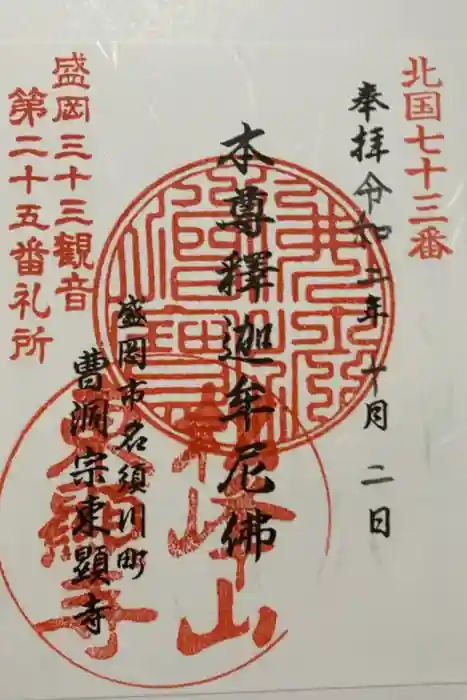 北国七十三番
奉拝 令和二年十月二日
本尊釋迦牟尼佛
盛岡市名須川町
曹洞宗東顯寺
盛岡三十三観音
第二十五番礼所
東顯寺